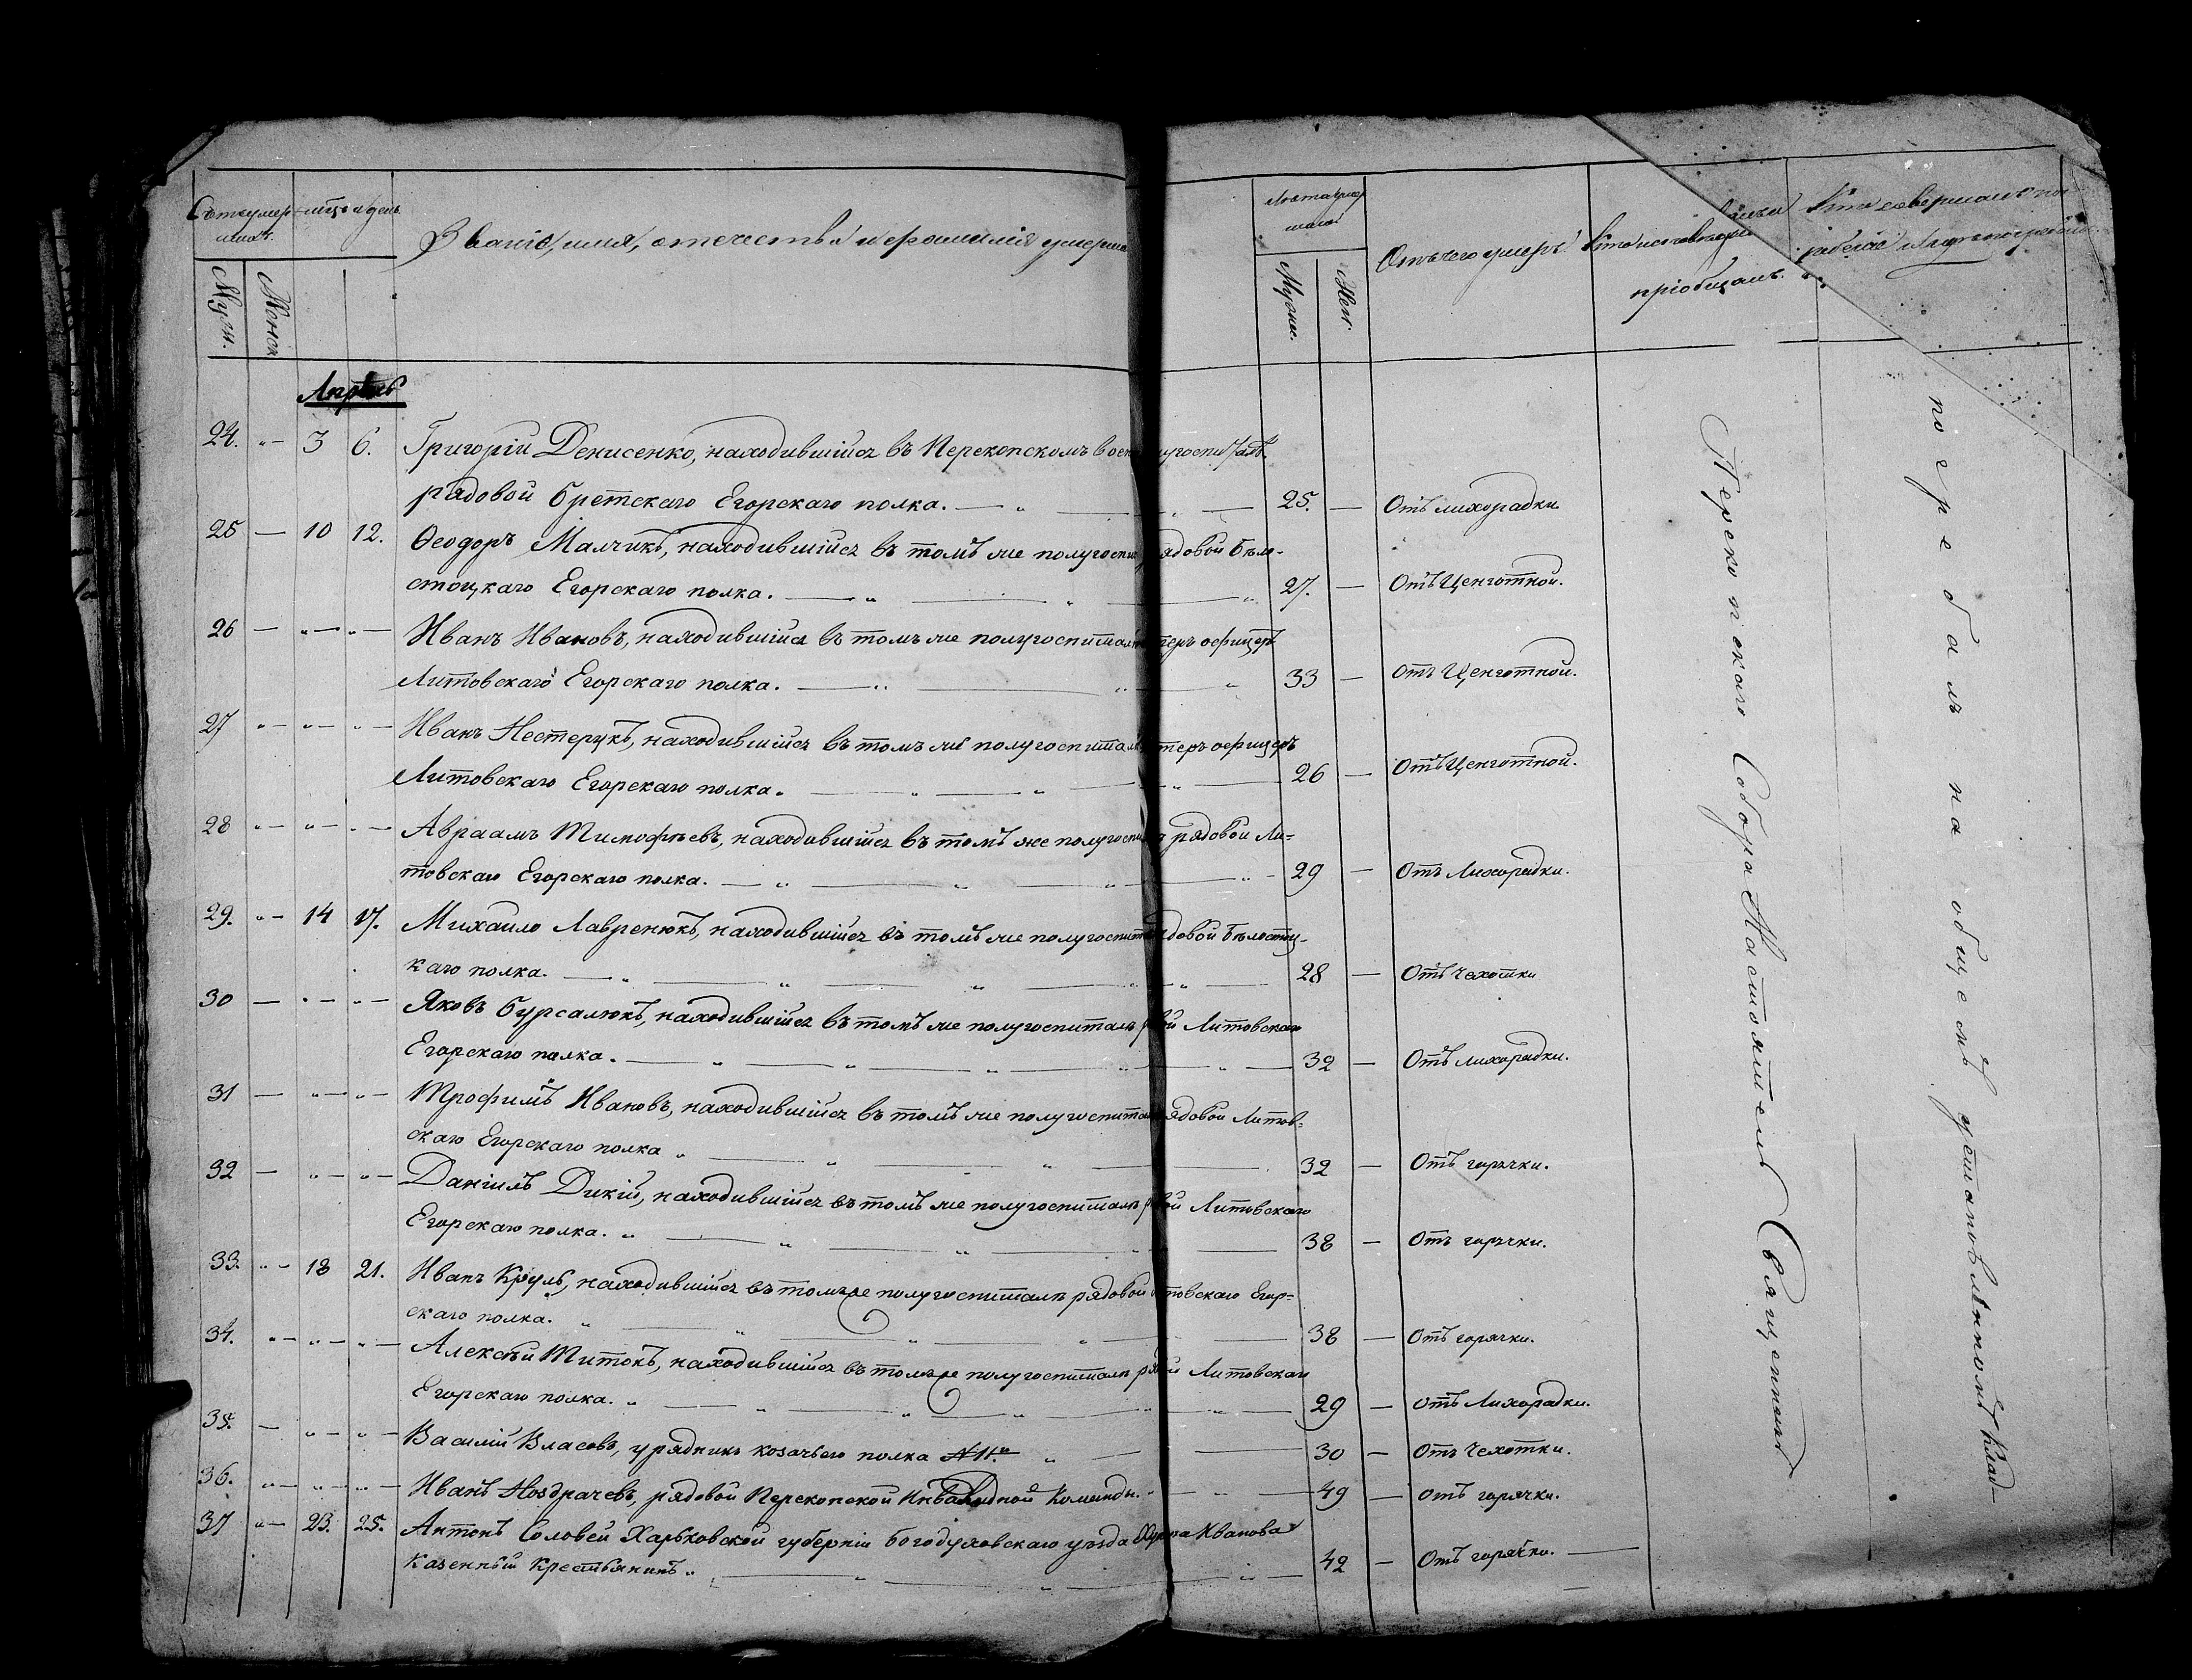 Счетъ умер-
шихъ.
Муж.
Женск
мцъ и день.
Званіе, имя, отечество и фамилія умерша
Лѣта умер
шаго
Мужес.
Жен.
Отъ чего умеръ
Кто исповѣдывалъ
пріобщалъ.
Кто совершалъ по-
гребеніе и гдѣ погребенъ.
Апрѣль
24. „ — 3 6. Григорій Денисенко, находившійся въ Перекопскомъ воен полугоспиталѣ
рядовой Брестскаго Егорскаго полка. — „ — 25. — Отъ лихорадки
25 — 10 12. Ѳеодоръ Малчикъ, находившійся въ томъ же полугоспит рядовой Бѣло-
стоцкаго Егорскаго полка. — „ — „ — „ 27. — Отъ Ценготной.
26 — „ — „ — Иванъ Ивановъ, находившійся въ томъ же полугоспиталѣ теръ офицеръ
Литовскаго Егорскаго полка. — „ — „ — „ 33 — Отъ Ценготной.
27 „ — „ — „ — Иванъ Нестерукъ, находившійся въ томъ же полугоспитал теръ офицеръ
Литовскаго Егорскаго полка. — „ — „ — „ — 26 — Отъ Ценготной.
28 „ — „ — „ — Авраамъ Тимофѣевъ, находившійся въ томъ же полугоспи рядовой Ли-
товскаго Егорскаго полка. — „ — „ — „ — „ — 29 — Отъ Лихорадки.
29. „ — 14 17. Михаило Лавренюкъ, находившійся въ томъ же полугоспит рядовой Бѣлостоц-
каго полка. — „ — „ — „ — „ — „ — 28 — Отъ чехотки
30 — „ — „ — Яковъ Бурсалюкъ, находившійся въ томъ же полугоспиталѣ рядовой Литовскаго
Егорскаго полка. — „ — „ — „ — „ — „ — 32 — Отъ лихорадки.
31 — „ — „ — Трофимъ Ивановъ, находившійся въ томъ же полугоспитал рядовой Литов-
скаго Егорскаго полка „ — „ — „ — 32 — Отъ горячки.
32 — „ — „ — Даніилъ Дикій, находившійся въ томъ же полугоспиталѣ рядовой Литовскаго
Егорскаго полка. „ — „ — „ — „ — 38 — Отъ горячки.
33. „ — 18 21. Иванъ Круль, находившійся въ томъ же полугоспиталѣ рядовой Литовскаго Егор-
скаго полка. „ — „ — „ — „ — 38 — Отъ горячки.
34. „ — „ — „ — Алексѣй Титокъ, находившійся въ томъ же полугоспиталѣ рядовой Литовскаго
Егорскаго полка. „ — „ — „ — „ — „ — „ — 29 — Отъ Лихорадки.
35. — „ — „ — Василій Власовъ, урядникъ козачьего полка №11. „ — 30 — Отъ Чехотки.
36. „ — „ — „ — Иванъ Ноздрачевъ, рядовой Перекопской Инвалидной Команды. „ — „ — 49 — Отъ горячки.
37 „ — 23. 25. Антонъ Соловей Харьковской губерніи Богодуховскаго уѣзда Ивановa
Казенный Крестьянинъ „ — „ — „ — „ — 42 — Отъ горячки. —
Перекопскаго Собора Настоятель Священникъ
погребалъ на общемъ установленномъ Клад-